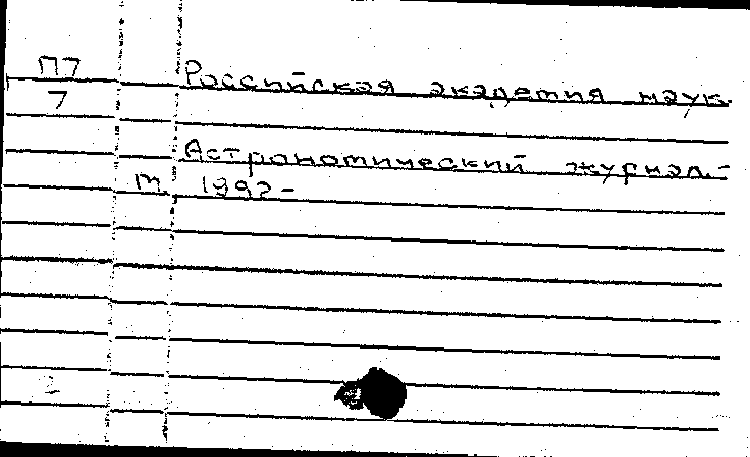 П7 Российская академия наук.
7
Астрономический журнал.-
М. 1992-